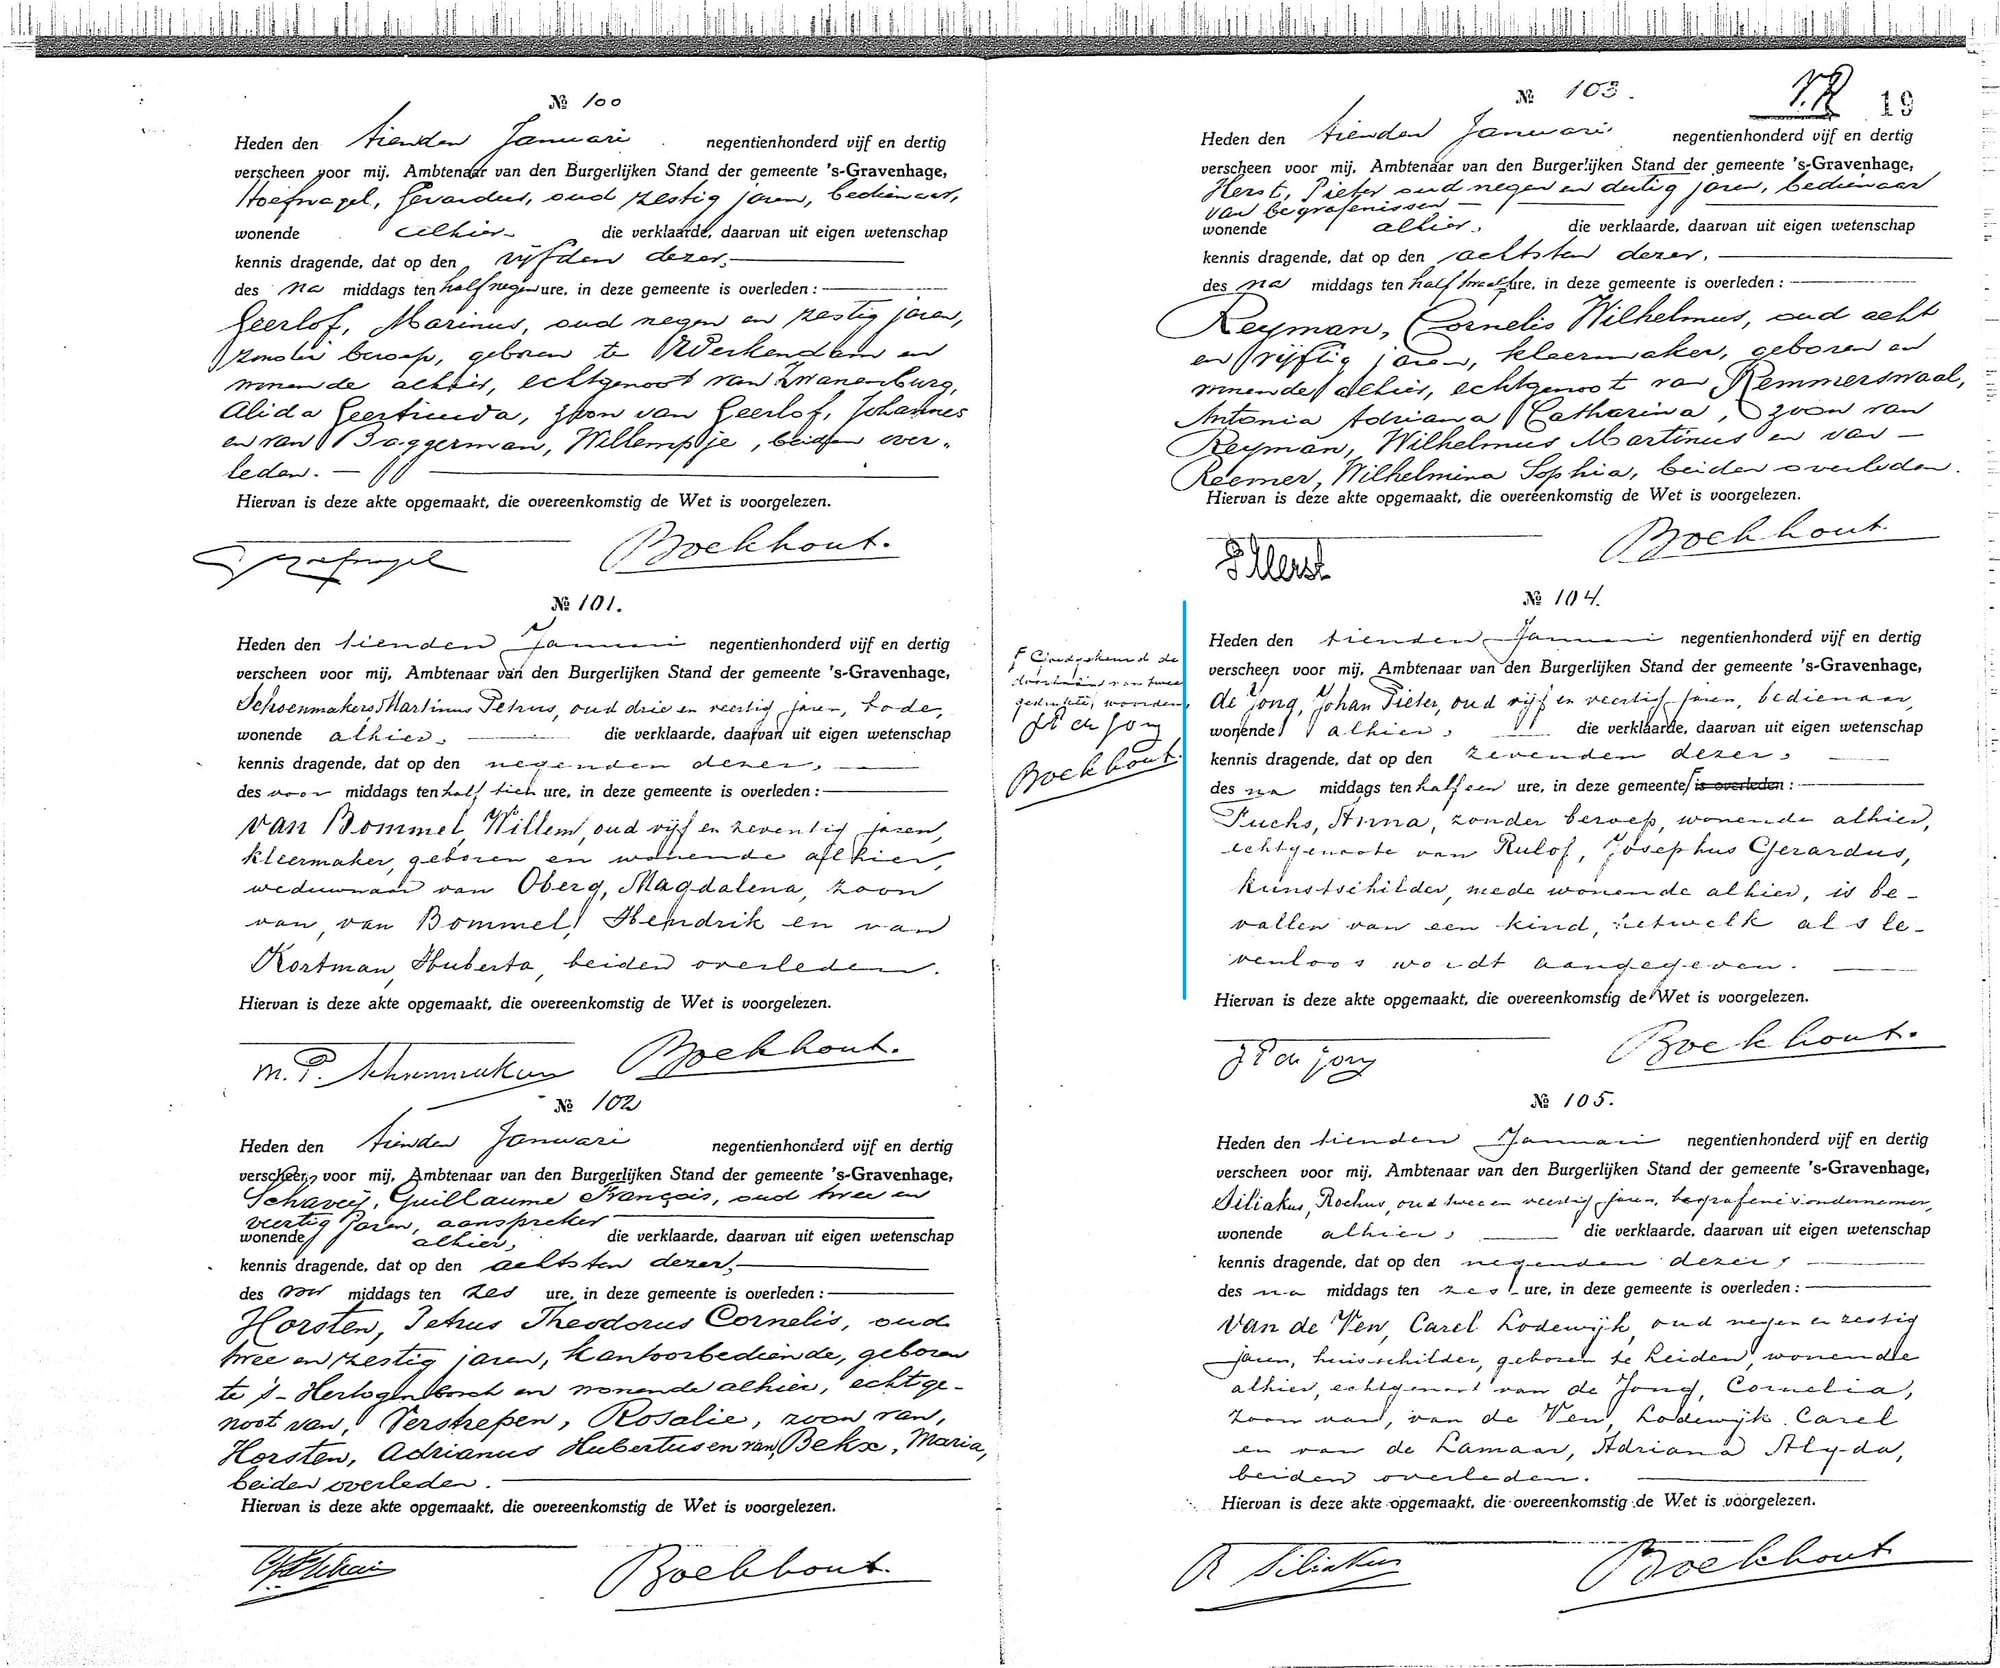 № 100
Heden den tienden Januari negentienhonderd vijf en dertig
verscheen voor mij, Ambtenaar van den Burgerlijken Stand der gemeente 's-Gravenhage,
Hoefnagel, Gerardus, oud zestig jaren, bedienaar,
wonende alhier die verklaarde, daarvan uit eigen wetenschap
kennis dragende, dat op den vijfden dezer,
des na middags ten half negen ure, in deze gemeente is overleden:
Geerlof, Marinus, oud negen en zestig jaren,
zonder beroep, geboren te Werkendam en
wonende alhier, echtgenoot van Zwanenburg,
Alida Geertruida, zoon van Geerlof, Johannes
en van Baggerman, Willempje, beiden over-
leden.
Hiervan is deze akte opgemaakt, die overeenkomstig de Wet is voorgelezen.
G Hoefnagel Boekhout.
№ 101.
Heden den tienden Januari negentienhonderd vijf en dertig
verscheen voor mij, Ambtenaar van den Burgerlijken Stand der gemeente 's-Gravenhage,
Schoenmakers, Martinus Petrus, oud drie en veertig jaren, bode,
wonende alhier, die verklaarde, daarvan uit eigen wetenschap
kennis dragende, dat op den negenden dezer,
des voor middags ten half tien ure, in deze gemeente is overleden:
van Bommel, Willem, oud vijf en zeventig jaren,
kleermaker, geboren en wonende alhier,
weduwnaar van Oberg, Magdalena, zoon
van, van Bommel, Hendrik en van
Kortman, Huberta, beiden overleden.
Hiervan is deze akte opgemaakt, die overeenkomstig de Wet is voorgelezen.
M. P. Schoenmakers Boekhout.
№ 102
Heden den tienden Januari negentienhonderd vijf en dertig
verscheen voor mij, Ambtenaar van den Burgerlijken Stand der gemeente 's-Gravenhage,
Schaveij, Guillaume François, oud twee en
veertig jaren, aanspreker
wonende alhier, die verklaarde, daarvan uit eigen wetenschap
kennis dragende, dat op den achtsten dezer,
des voor middags ten zes ure, in deze gemeente is overleden:
Horsten, Petrus Theodorus Cornelis, oud
twee en zestig jaren, kantoorbediende, geboren
te 's-Hertogenbosch en wonende alhier, echtge-
noot van, Verstrepen, Rosalie, zoon van,
Horsten, Adrianus Hubertus en van, Bekx, Maria,
beiden overleden.
Hiervan is deze akte opgemaakt, die overeenkomstig de Wet is voorgelezen.
Boekhout.
19
№ 103.
Heden den tienden Januari negentienhonderd vijf en dertig
verscheen voor mij, Ambtenaar van den Burgerlijken Stand der gemeente 's-Gravenhage,
Herst, Pieter oud negen en dertig jaren, bedienaar
van begrafenissen
wonende alhier, die verklaarde, daarvan uit eigen wetenschap
kennis dragende, dat op den achtsten dezer,
des na middags ten half twaalf ure, in deze gemeente is overleden:
Reyman, Cornelis Wilhelmus, oud acht
en vijftig jaren, kleermaker, geboren en
wonende alhier, echtgenoot van Remmerswaal,
Antonia Adriana Catharina, zoon van
Reyman, Wilhelmus Martinus en van
Reemer, Wilhelmina Sophia, beiden overleden.
Hiervan is deze akte opgemaakt, die overeenkomstig de Wet is voorgelezen.
P Herst Boekhout.
№ 104.
Heden den tienden Januari negentienhonderd vijf en dertig
verscheen voor mij, Ambtenaar van den Burgerlijken Stand der gemeente 's-Gravenhage,
de Jong, Johan Pieter, oud vijf en veertig jaren, bedienaar,
wonende alhier, die verklaarde, daarvan uit eigen wetenschap
kennis dragende, dat op den zevenden dezer,
des na middags ten half een ure, in deze gemeente is overleden:
Fuchs, Anna, zonder beroep, wonende alhier,
echtgenoote van Rulof, Josephus Gerardus,
kunstschilder, mede wonende alhier, is be-
vallen van een kind, hetwelk als le-
venloos wordt aangegeven.
Hiervan is deze akte opgemaakt, die overeenkomstig de Wet is voorgelezen.
J P de Jong Boekhout.
Goedgekeurd de
doorhaling van twee
gedrukte woorden,
J P de Jong
Boekhout.
№ 105.
Heden den tienden Januari negentienhonderd vijf en dertig
verscheen voor mij, Ambtenaar van den Burgerlijken Stand der gemeente 's-Gravenhage,
Siliakus, Rochus, oud twee en veertig jaren, begrafenisondernemer,
wonende alhier, die verklaarde, daarvan uit eigen wetenschap
kennis dragende, dat op den negenden dezer,
des na middags ten zes ure, in deze gemeente is overleden:
van de Ven, Carel Lodewijk, oud negen en zestig
jaren, huisschilder, geboren te Leiden, wonende
alhier, echtgenoot van de Jong, Cornelia,
zoon van, van de Ven, Lodewijk Carel
en van de Lamaar, Adriana Alyda,
beiden overleden.
Hiervan is deze akte opgemaakt, die overeenkomstig de Wet is voorgelezen.
R Siliakus Boekhout.